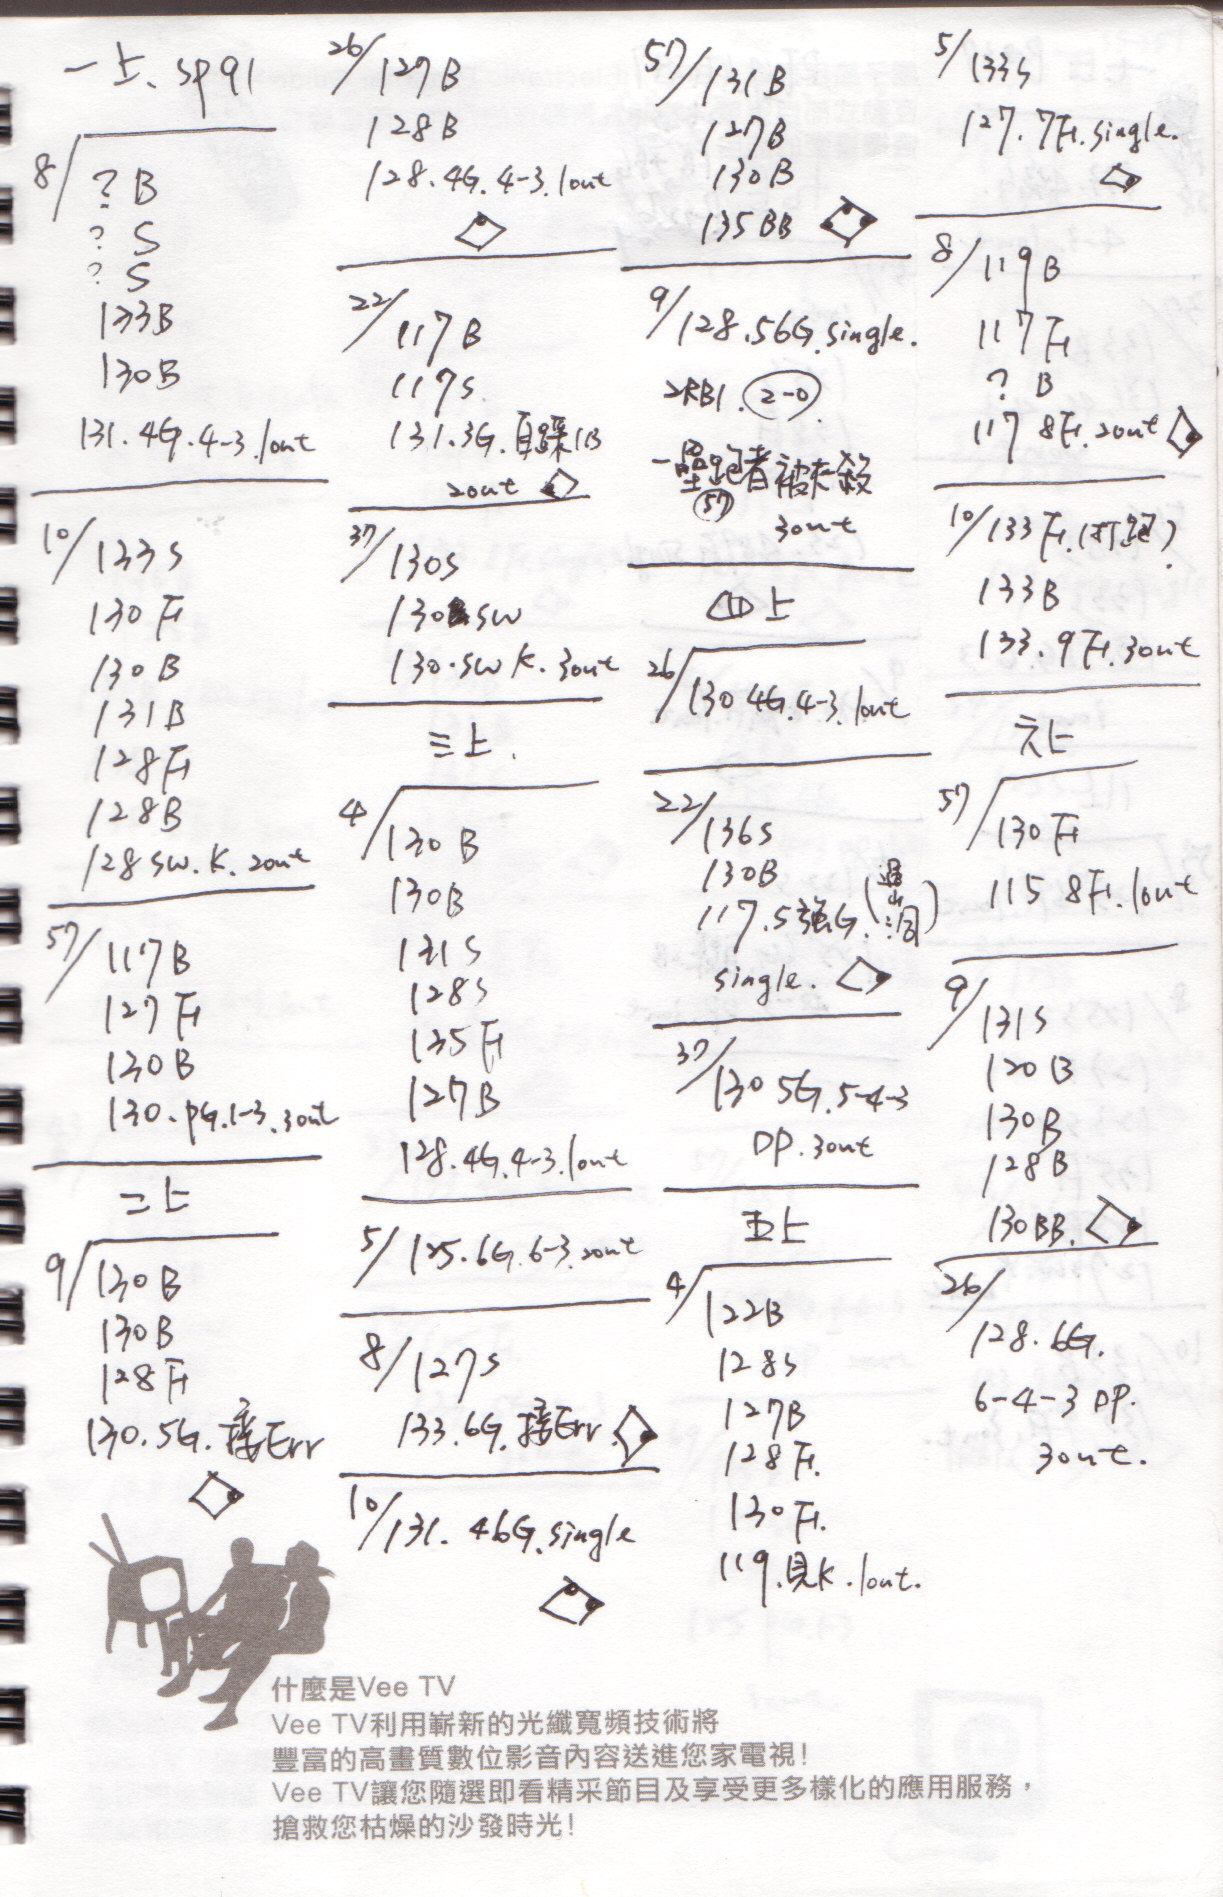 一上、SP91
8/ ?B
?S
?S
133B
130B
131.4G.4-3.1out
10/133S
130F
130B
131B
128F
128B
128SW.K.2out
57/117B
127F
130B
130.PG.1-3.3out
二上
9/130B
130B
128F
130.5G.接Err
26/127B
128B
128.4G.4-3.1out
22/117B
117S
131.3G.自踩1B
2out
37/130S
130SW
130.SWK.3out
三上.
4/130B
130B
131S
128S
135F
127B
128.4G.4-3.1out
5/125.6G.6-3.2out
8/127S
133.6G.接Err
10/131.46G.single
57/131B
127B
130B
135BB
9/128.56G.single.
2RBI.(2-0)
一壘跑者被夾殺
(57)
3out
四上
26/130 4G.4-3.1out
22/136S
130B
117.5強G.(過三洞)
single.
37/130 5G.5-4-3
DP.3out
五上
4/122B
128S
127B
128F.
130F.
119.見K.1out.
5/133S
127.7F.single.
8/119B
117F
?B
117 8F.2out
10/133F.(打跑?)
133B
133.9F.3out
六上
57/130F
115 8F.1out
9/131S
120B
130B
128B
130BB.
26/
128.6G.
6-4-3 DP.
3out.
什麼是Vee TV
Vee TV利用嶄新的光纖寬頻技術將
豐富的高畫質數位影音內容送進您家電視!
Vee TV讓您隨選即看精采節目及享受更多樣化的應用服務，
搶救您枯燥的沙發時光!